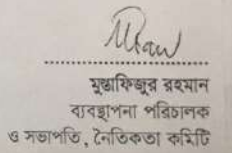 মুস্তাফিজুর রহমান
ব্যবস্থাপনা পরিচালক
ও সভাপতি, নৈতিকতা কমিটি